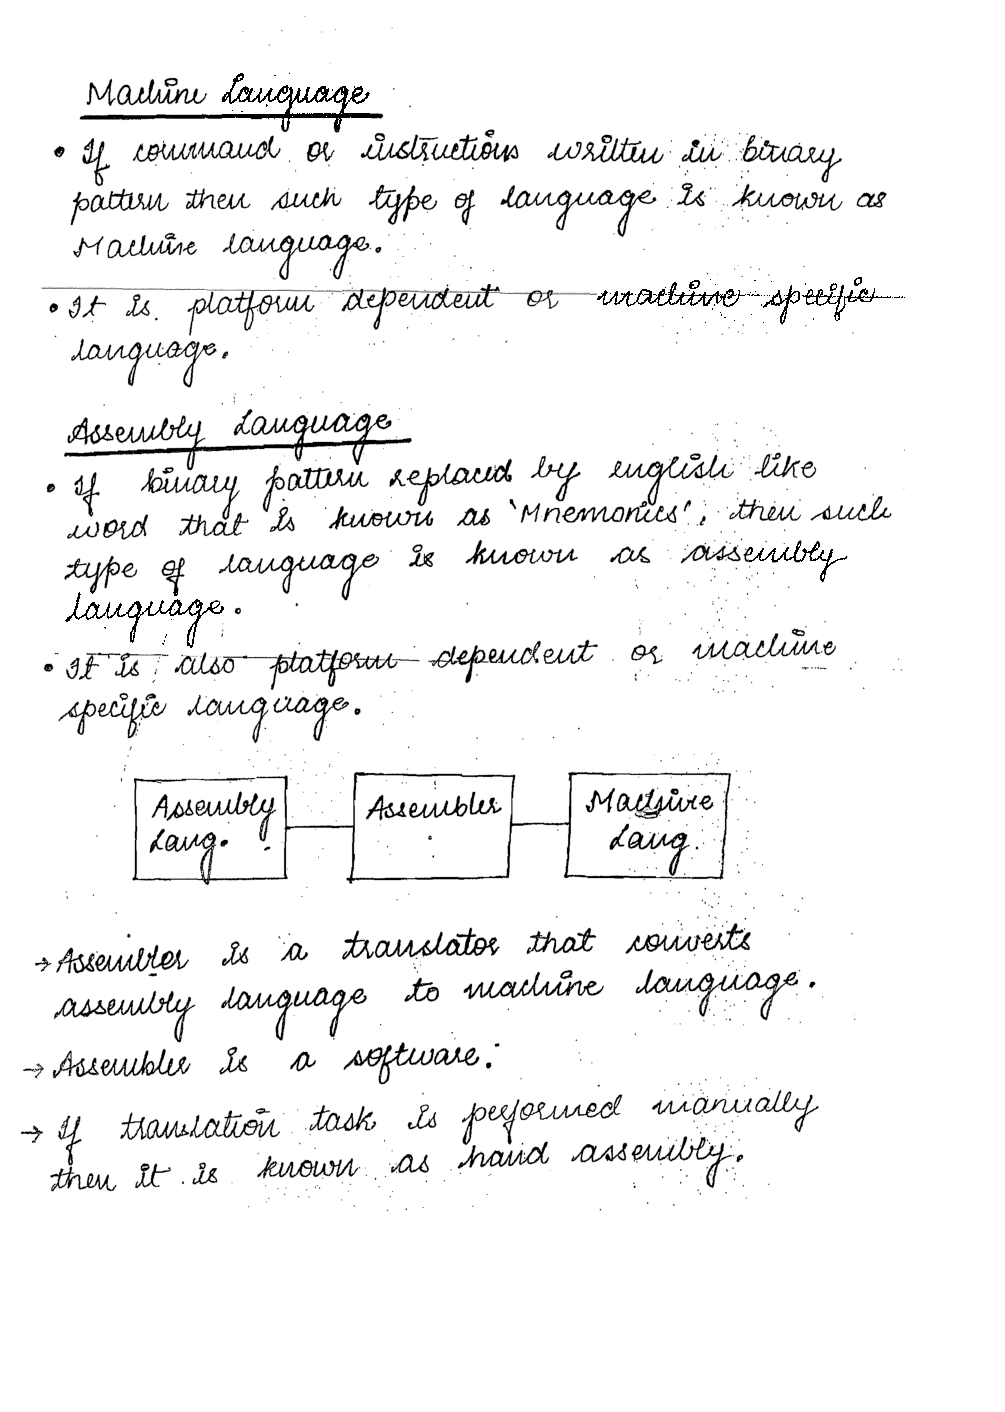 Machine Language
• If command or instructions written in binary
pattern then such type of language is known as
Machine language.
• It is platform dependent or machine specific
language.
Assembly Language
• If binary pattern replaced by english like
word that is known as 'Mnemonics', then such
type of language is known as assembly
language.
• It is also platform dependent or machine
specific language.
Assembly
Lang.
Assembler
Machine
Lang.
→ Assembler is a translator that converts
assembly language to machine language.
→ Assembler is a software.
→ If translation task is performed manually
then it is known as hand assembly.